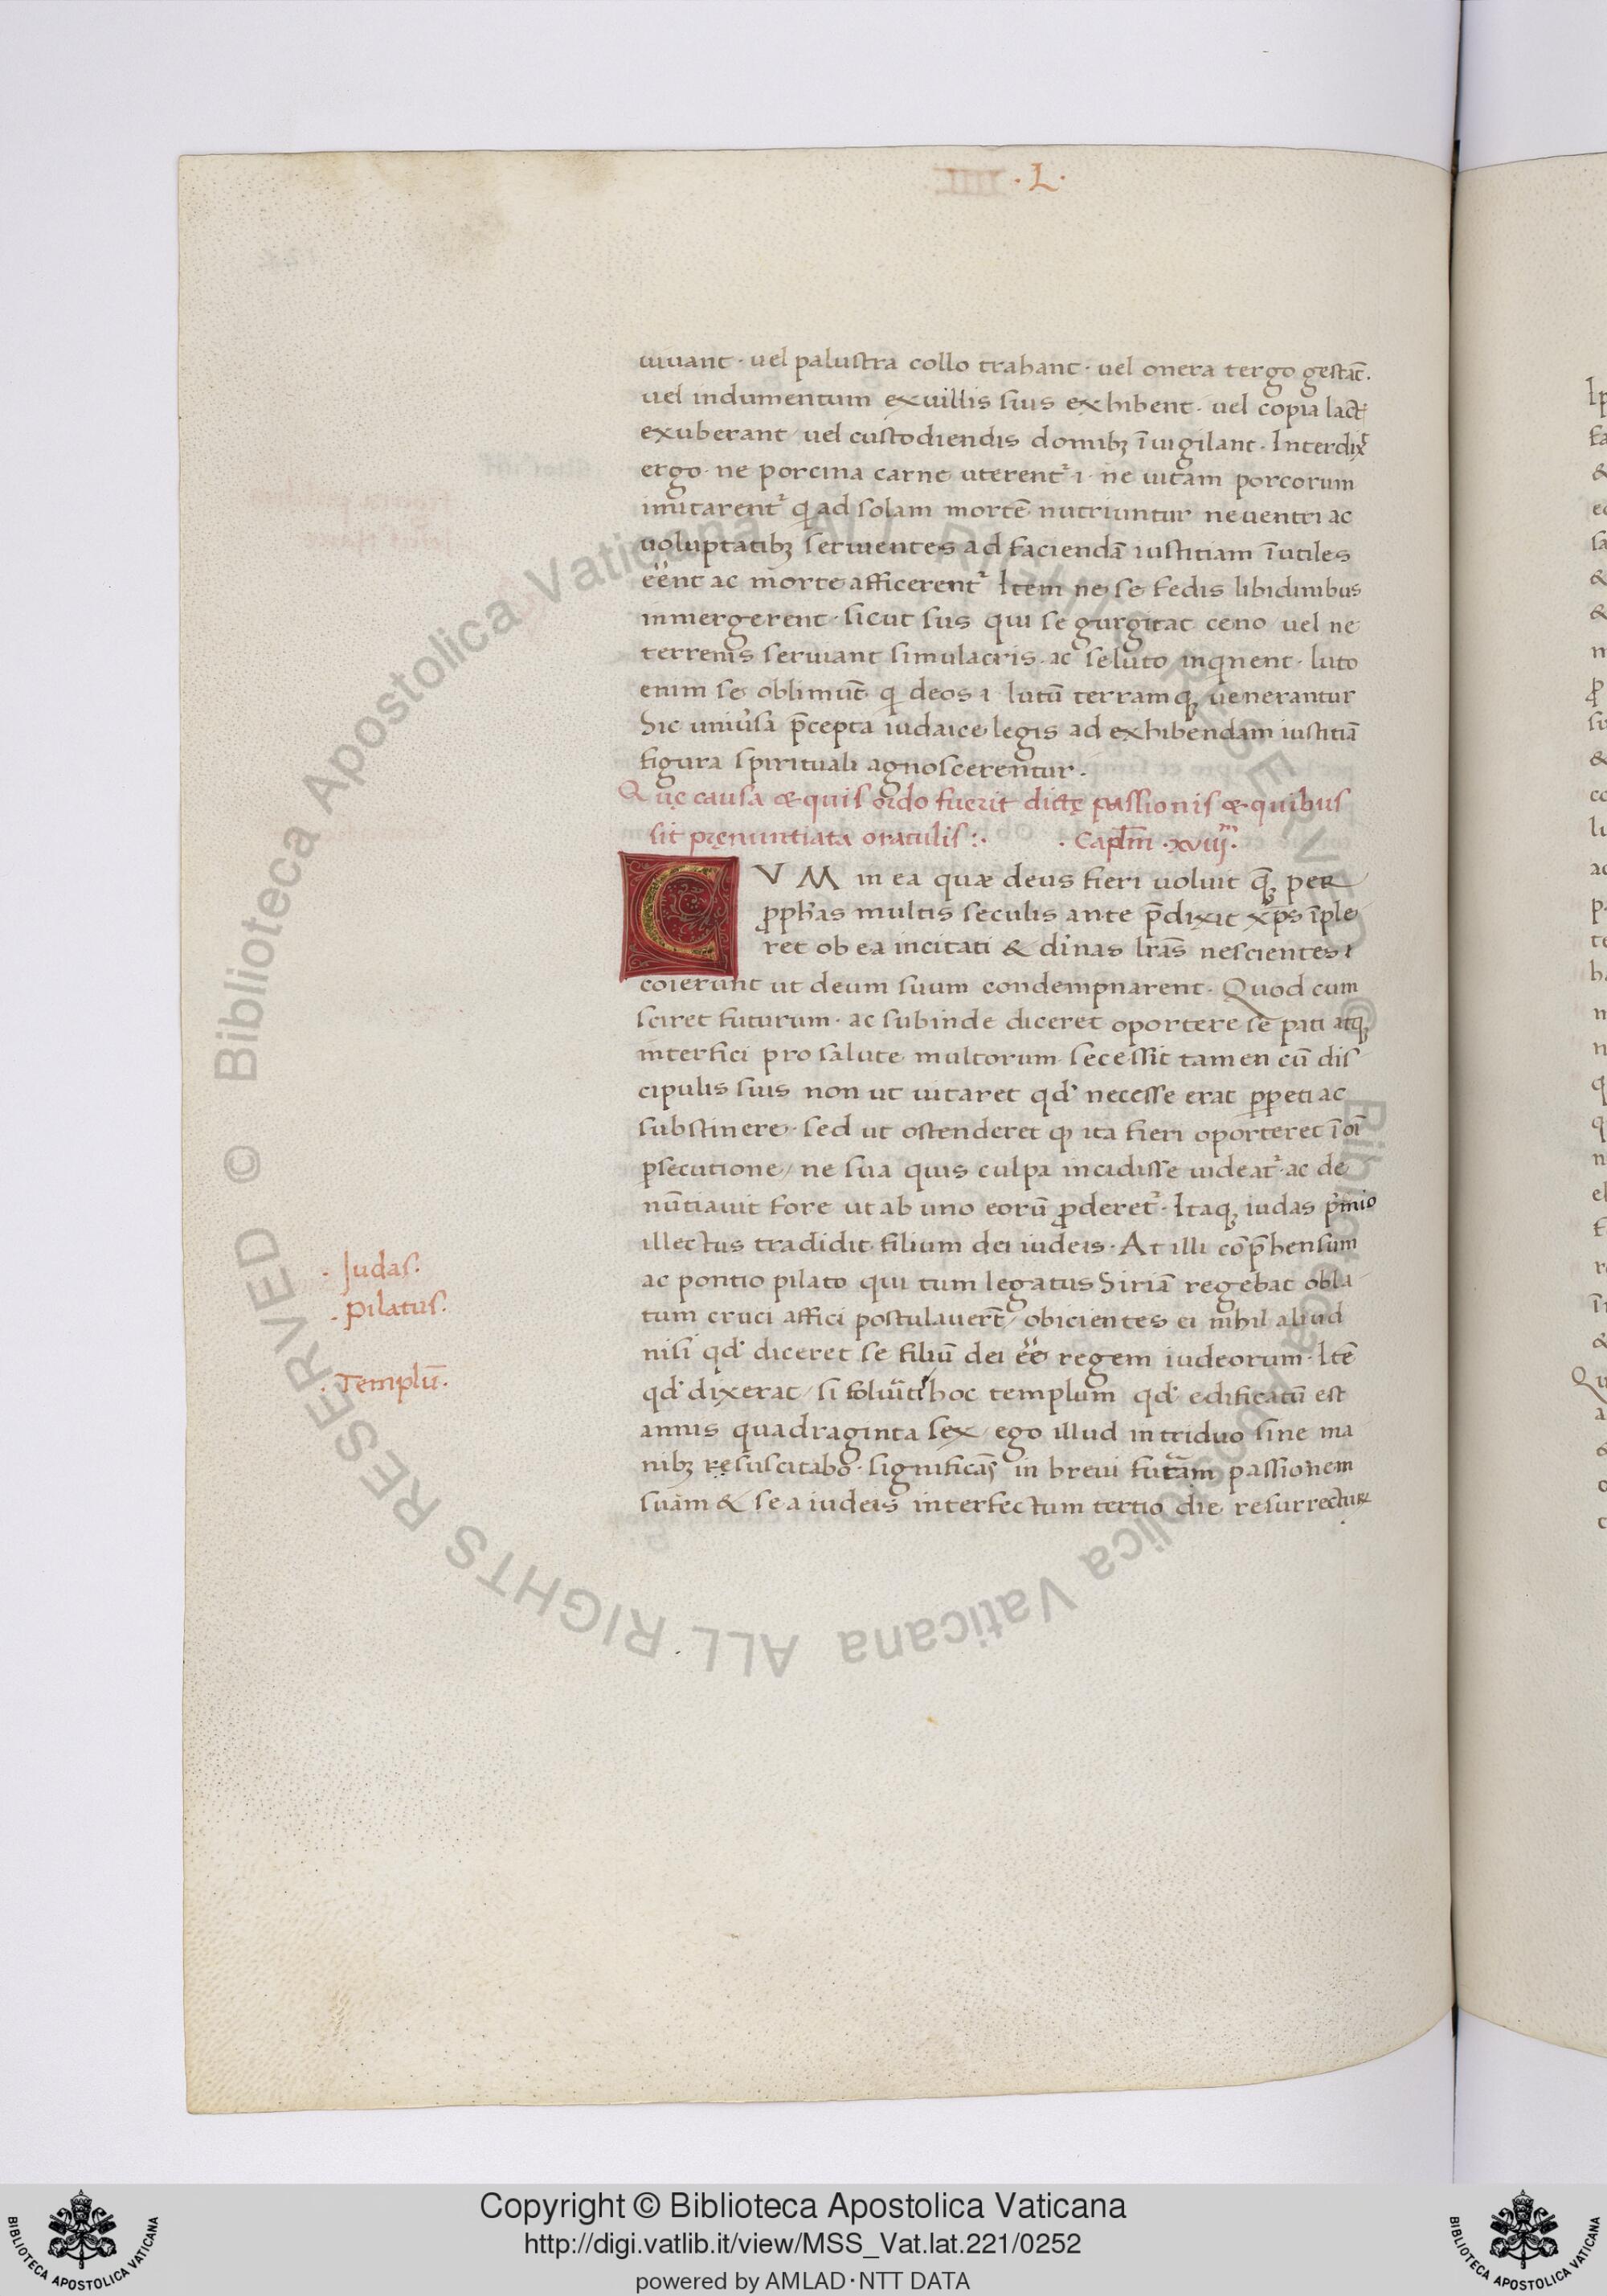 · L ·
uiuant · uel palustra collo trahant · uel onera tergo gestāt.
uel indumentum ex uillis suis exhibent · uel copia lact̄
exuberant / uel custodiendis domibꝫ īuigilant · Interdix̄
ergo · ne porcina carne uterent᷑ · i · ne uitam porcorum
imitarent᷑ q ad solam mortē nutriuntur ne uentri ac
uoluptatibꝫ seruientes ad faciendā iustitiam īutiles
eēnt ac morte afficerent᷑ Item ne se fedis libidinibus
inmergerent · sicut sus qui se gurgitat ceno / uel ne
terrenis seruiant simulacris · ac se luto inqnent · luto
enim se oblimūt q deos · i · lutū terramqꝫ uenerantur
Sic uniũsa p̄cepta iudaice legis ad exhibendam iustitiā
figura spirituali agnoscerentur ·
Quę causa & quis ordo fuerit dictę passionis & quibus
sit pręnuntiata oraculis : · · Capl̄m · xviij ·
CVM in ea quæ deus fieri uoluit q̄ꝫ per
ꝓph̄as multis seculis ante p̄dixit xp̄s īple
ret ob ea incitati & diñas lr̄as nescientes ·
coierunt ut deum suum condempnarent · Quod cum
sciret futurum · ac subinde diceret oportere se pati atqꝫ
interfici pro salute multorum · secessit tamen cū dis
cipulis suis non ut uitaret qd̕ necesse erat ꝑpeti ac
substinere · sed ut ostenderet ꝙ ita fieri oporteret ī oī
ꝑsecutione / ne sua quis culpa incidisse uideat᷑ · ac de
nūtiauit fore ut ab uno eorū ꝓderet᷑ · Itaqꝫ iudas p̄mio
illectus tradidit filium dei iudeis · At illi cōp̄hensum
ac pontio pilato qui tum legatus Siriā regebat obla
tum cruci affici postulauert̄ / obicientes ei nihil aliud
nisi qd̕ diceret se filiū dei eē regem iudeorum · Itē
qd̕ dixerat / si soluūti hoc templum qd̕ edificatū est
annis quadraginta sex / ego illud in triduo sine ma
nibꝫ resuscitabo · significās in breui futām passionem
suam & se a iudeis interfectum tertio die resurrectuꝝ
· Judas ·
· Pilatus ·
· Templū ·
© Biblioteca Apostolica Vaticana ALL RIGHTS RESERVED © Biblioteca Apostolica Vaticana ALL RIGHTS RESERVED
Copyright © Biblioteca Apostolica Vaticana
http://digi.vatlib.it/view/MSS_Vat.lat.221/0252
powered by AMLAD·NTT DATA
BIBLIOTECA APOSTOLICA VATICANA
BIBLIOTECA APOSTOLICA VATICANA